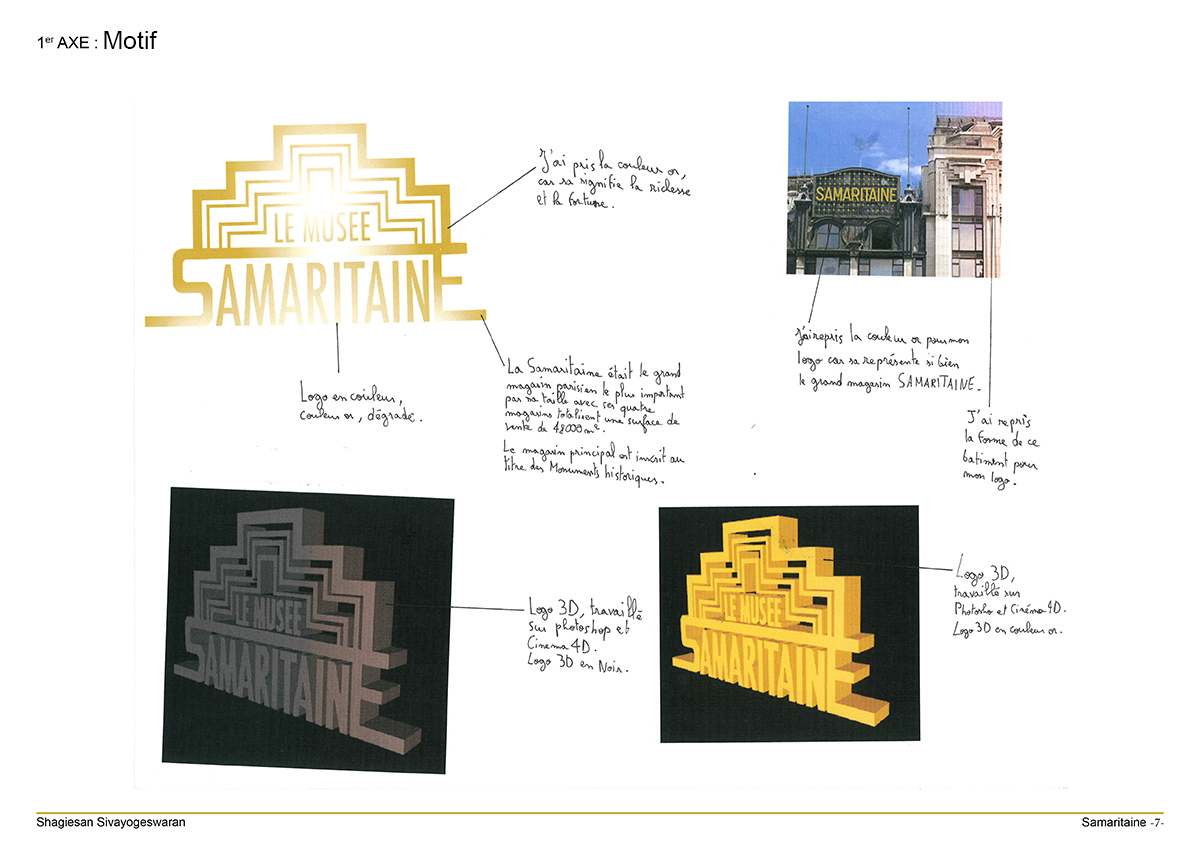 1er AXE : Motif
LE MUSEE
SAMARITAINE
J'ai pris la couleur or,
car sa signifie la richesse
et la fortune.
SAMARITAINE
Logo en couleur,
couleur or, dégradé.
La Samaritaine était le grand
magasin parisien le plus important
par sa taille avec ses quatre
magasins totalisant une surface de
vente de 48000 m².
Le magasin principal est inscrit au
titre des Monuments historiques.
J'ai repris la couleur or pour mon
logo car sa représente si bien
le grand magasin SAMARITAINE.
J'ai repris
la forme de ce
batiment pour
mon logo.
LE MUSEE
SAMARITAINE
Logo 3D, travaillé
sur photoshop et
Cinema 4D.
Logo 3D en Noir.
LE MUSEE
SAMARITAINE
Logo 3D,
travaillé sur
Photosho et Cinéma 4D.
Logo 3D en couleur or.
Shagiesan Sivayogeswaran
Samaritaine -7-